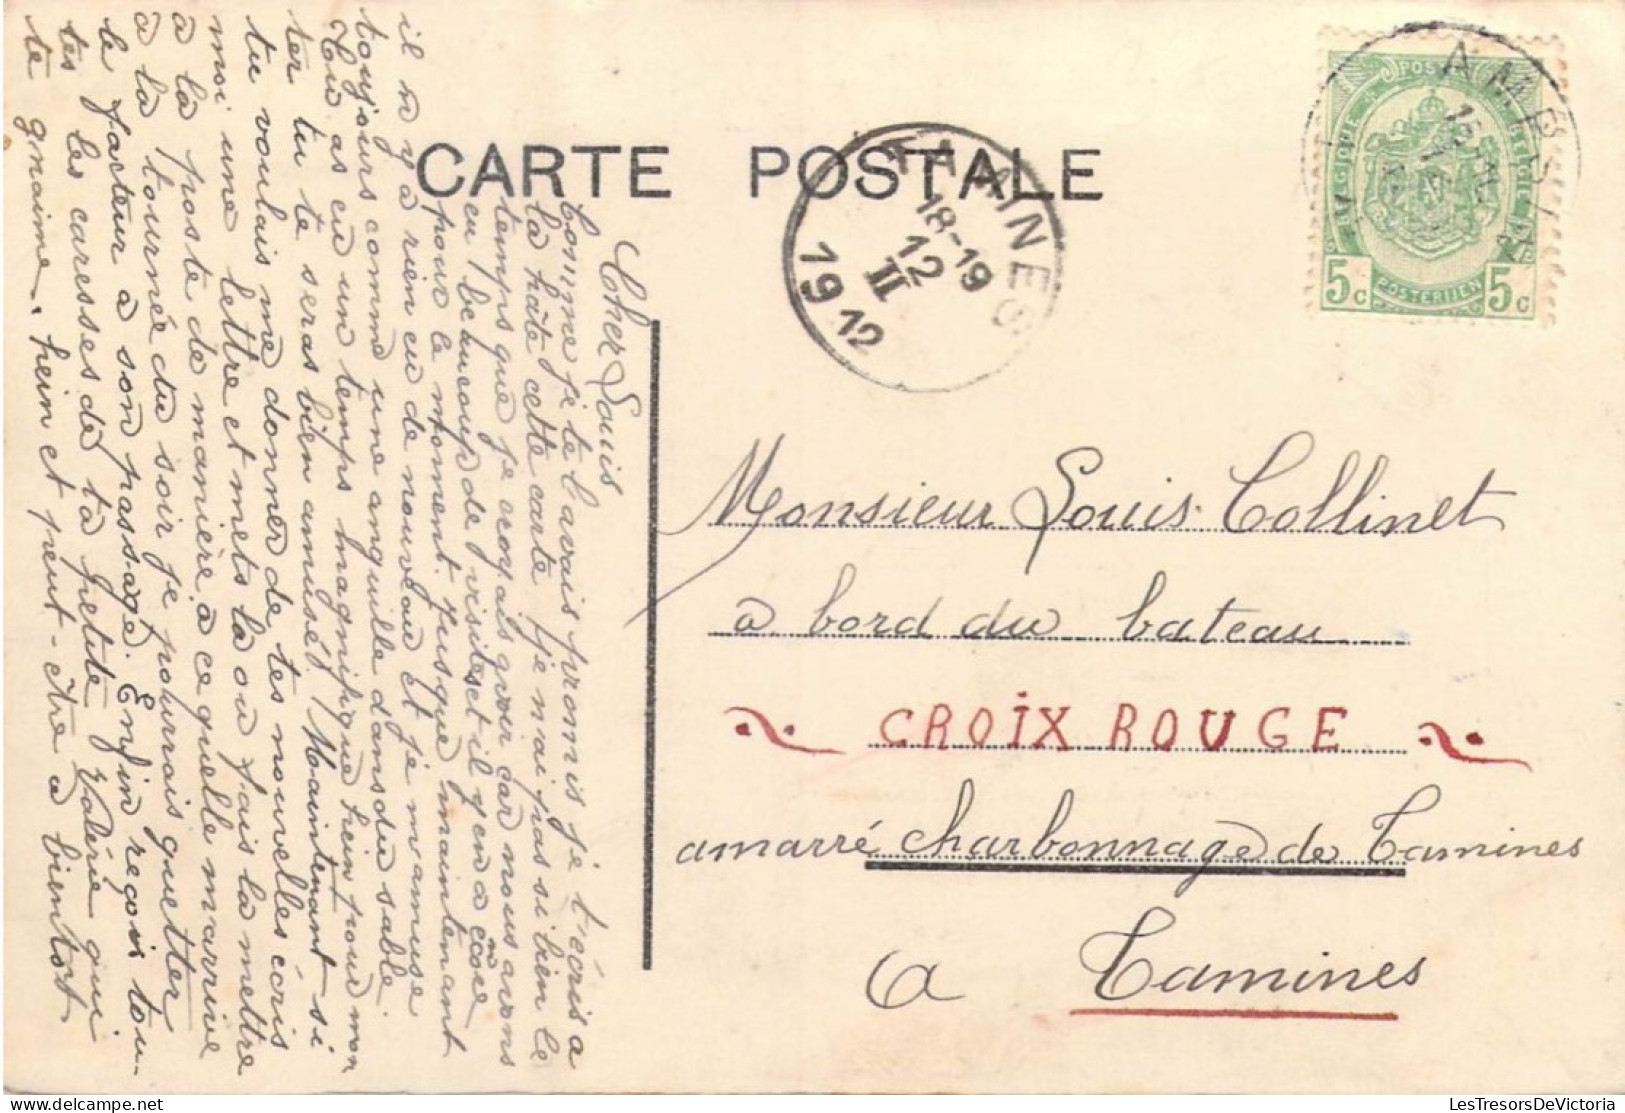 CARTE POSTALE
TAMINES
18-19
12
II
1912
POSTES
BELGIQUE
BELGIË
POSTERIJEN
5c 5c
Cher Louis
Comme je te l'avais promis je t'écris a
la hâte cette carte (je n'ai pas si bien le
temps que je croyais avoir car nous avons
eu beaucoup de visites et il y en a encore
pour le moment. Jusque maintenant
il n'y a rien eu de nouveau et je m'amuse
toujours comme une anguille dans du sable.
Tu as eu un temps magnifique hein pour mon
ter tu te seras bien amusé! Maintenant si
tu voulais me donner de tes nouvelles écris
moi une lettre et mets la ou fais la mettre
a la poste de manière à ce quelle m'arrive
a la tournée du soir je pourrais guetter
le facteur à son passage. Enfin reçois tou-
tes les caresses de ta petite Valérie qui
te gnaime. hein et peut-être a bientot
Monsieur Louis Collinet
a bord du bateau
CROIX ROUGE
amarré charbonnage de Tamines
a Tamines
LesTresorsDeVictoria